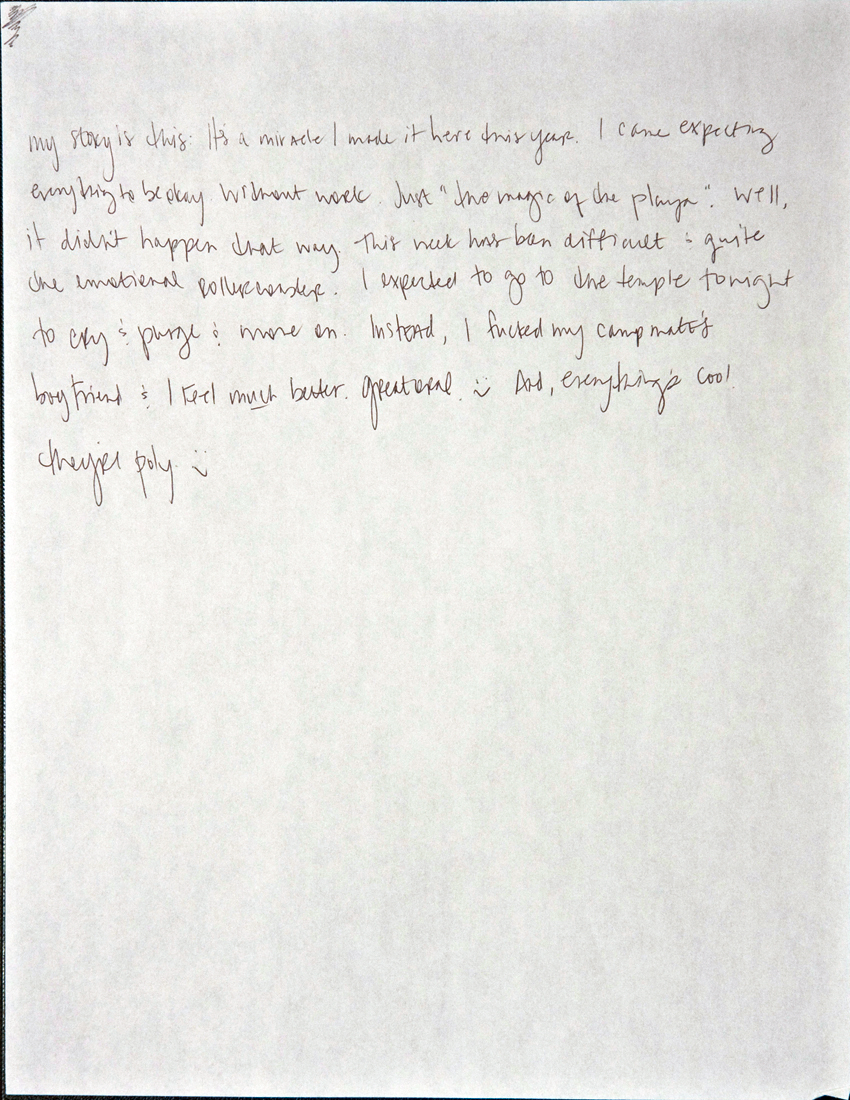 my story is this: It's a miracle I made it here this year. I came expecting
everything to be okay. Without work. Just "the magic of the playa". Well,
it didn't happen that way. This week has been difficult & quite
the emotional rollercoaster. I expected to go to the temple tonight
to cry & purge & move on. Instead, I fucked my campmate's
boyfriend & I feel much better. Great oral. :) And, everything's cool.
they're poly :)